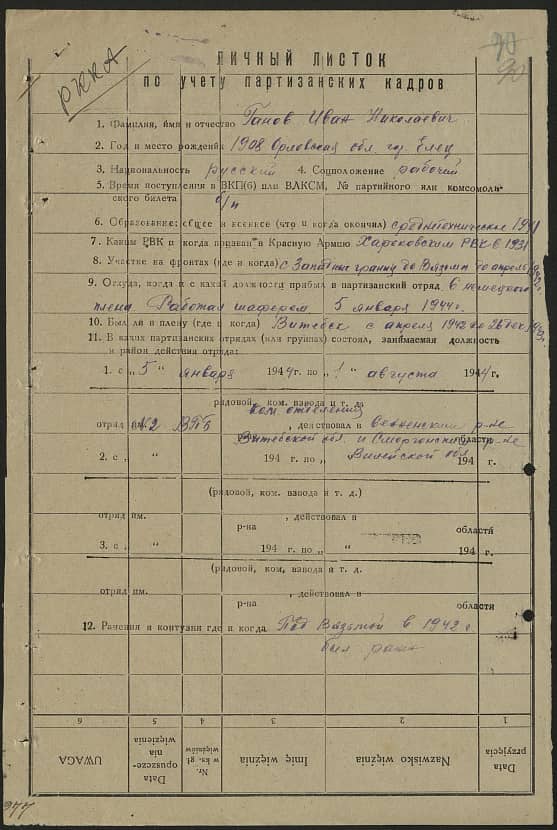 РККА
90
ЛИЧНЫЙ ЛИСТОК
по учету партизанских кадров
1. Фамилия, имя и отчество Ганов Иван Николаевич
2. Год и место рождения 1908 Орловская обл. гор. Елец
3. Национальность русский 4. Соцположение рабочий
5. Время поступления в ВКП(б) или ВЛКСМ, № партийного или комсомоль-
ского билета б/п
6. Образование: общее и военное (что и когда окончил) среднетехническое 1931
7. Каким РВК и когда призван в Красную Армию Харьковским РВК в 1931
8. Участие на фронтах (где и когда) с Западной границы до Вязьмы до апрель 1942 г.
9. Откуда, когда и с какой должности прибыл в партизанский отряд в немецкого
плена. Работал шофером 5 января 1944 г.
10. Был ли в плену (где и когда) Витебск с апреля 1942 до 26 дек 1943
11. В каких партизанских отрядах (или группах) состоял, занимаемая должность
и район действия отряда:
1. с „5" января 1944 г. по „1" августа 1944 г.
рядовой, ком. взвода и т. д.
ком отделения
отряд им. №2 ВПБ, действовал в р-не
Витебской обл. и Сморгонский р-не
области
2. с „ " 194 г. по „ Вилейской обл 194 г.
(рядовой, ком. взвода и т. д.)
отряд им. , действовал в
р-на области
3. с „ " 194 г. по „ " 194 г.
(рядовой, ком. взвода и т. д.
отряд им. , действовал в
р-на области
12. Ранения и контузии где и когда Под Вязьмой в 1942 г.
был ранен
6 5 4 3 2 1
UWAGA
Data opuszcze-nia więzienia
Nr. w ks. gł. więźniów
Imię więźnia
Nazwisko więźnia
Data przyjęcia
977